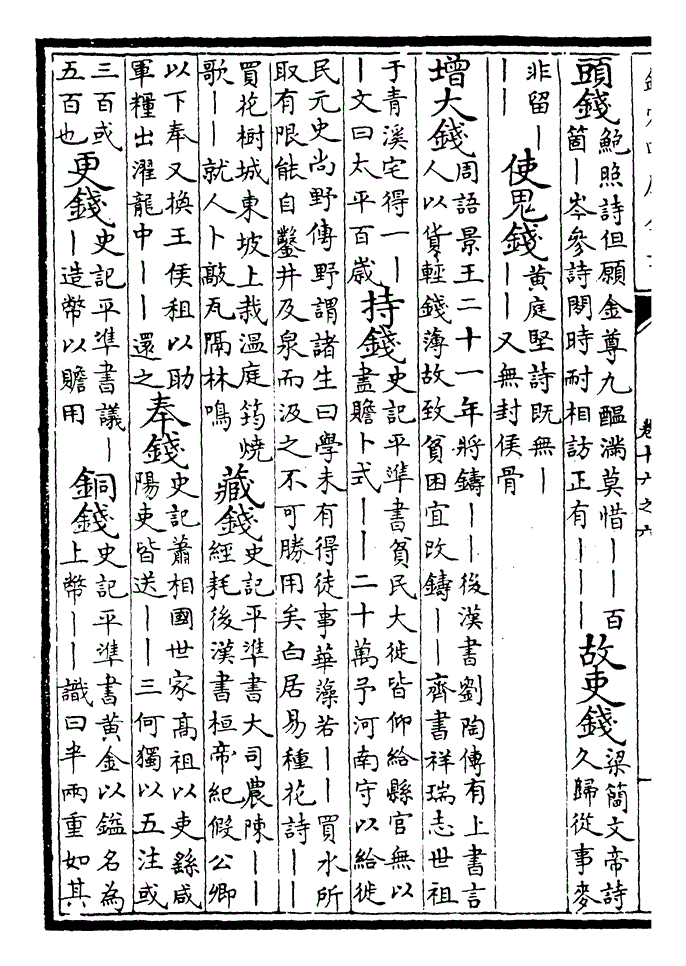 卷十六之六
頭錢
鮑照詩但願金尊九醖滿莫惜丨丨百
箇丨岑參詩閒時耐相訪正有丨丨丨
故吏錢
梁簡文帝詩
久歸從事麥
非留丨
丨丨
使鬼錢
黃庭堅詩既無丨
丨丨又無封侯骨
增大錢
周語景王二十一年將鑄丨丨後漢書劉陶傳有上書言
人以貨輕錢薄故致貧困宜改鑄丨丨齊書祥瑞志世祖
于青溪宅得一丨
丨文曰太平百歲
持錢
史記平準書貧民大徙皆仰給縣官無以
盡贍卜式丨丨二十萬予河南守以給徙
民元史尚野傳野謂諸生曰學未有得徒事華藻若丨丨買水所
取有限能自鑿井及泉而汲之不可勝用矣白居易種花詩丨丨
買花樹城東坡上栽溫庭筠燒
歌丨丨就人卜敲瓦隔林鳴
藏錢
史記平準書大司農陳丨丨
經耗後漢書桓帝紀假公卿
以下奉又換王侯租以助
軍糧出濯龍中丨丨還之
奉錢
史記蕭相國世家高祖以吏繇咸
陽吏皆送丨丨三何獨以五注或
三百或
五百也
更錢
史記平準書議丨
丨造幣以贍用
銅錢
史記平準書黃金以鎰名為
上幣丨丨識曰半兩重如其